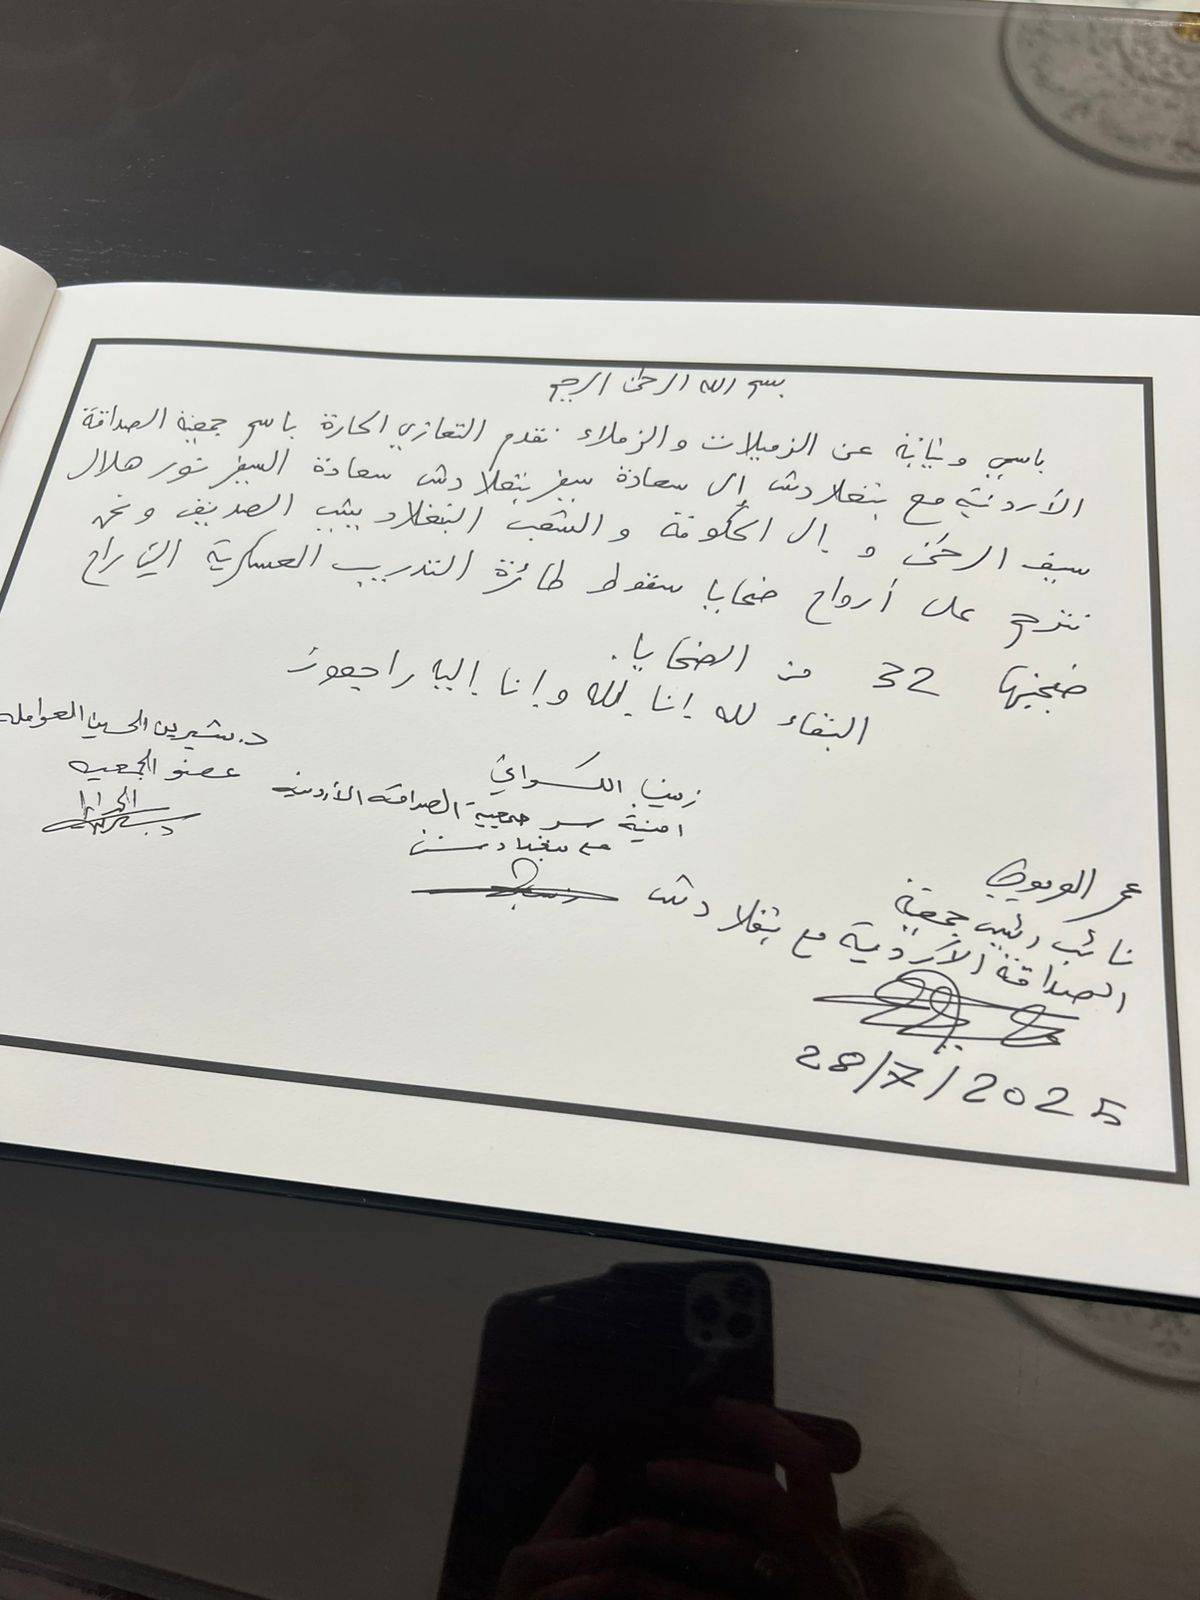 بسم الله الرحمن الرحيم
باسمي ونيابة عن الزميلات والزملاء نقدم التعازي الحارة باسم جمعية الصداقة
الأردنية مع بنغلادش إلى سعادة سفير بنغلادش سعادة السفير نور هلال
سيف الرحمن و إلى الحكومة والشعب البنغلاديشي الصديق ونحن
نترحم على أرواح ضحايا سقوط طائرة التدريب العسكرية التي راح
ضحيتها 32 من الضحايا.
البقاء لله إنا لله وإنا إليه راجعون
د. شيرين الحسين العوامله
عضو الجمعيه
زينب
امينة سر جمعية الصداقة الأردنيه
مع بنغلادش
عمر
نائب رئيس جمعية
الصداقة الأردنية مع بنغلادش
28/7/2025